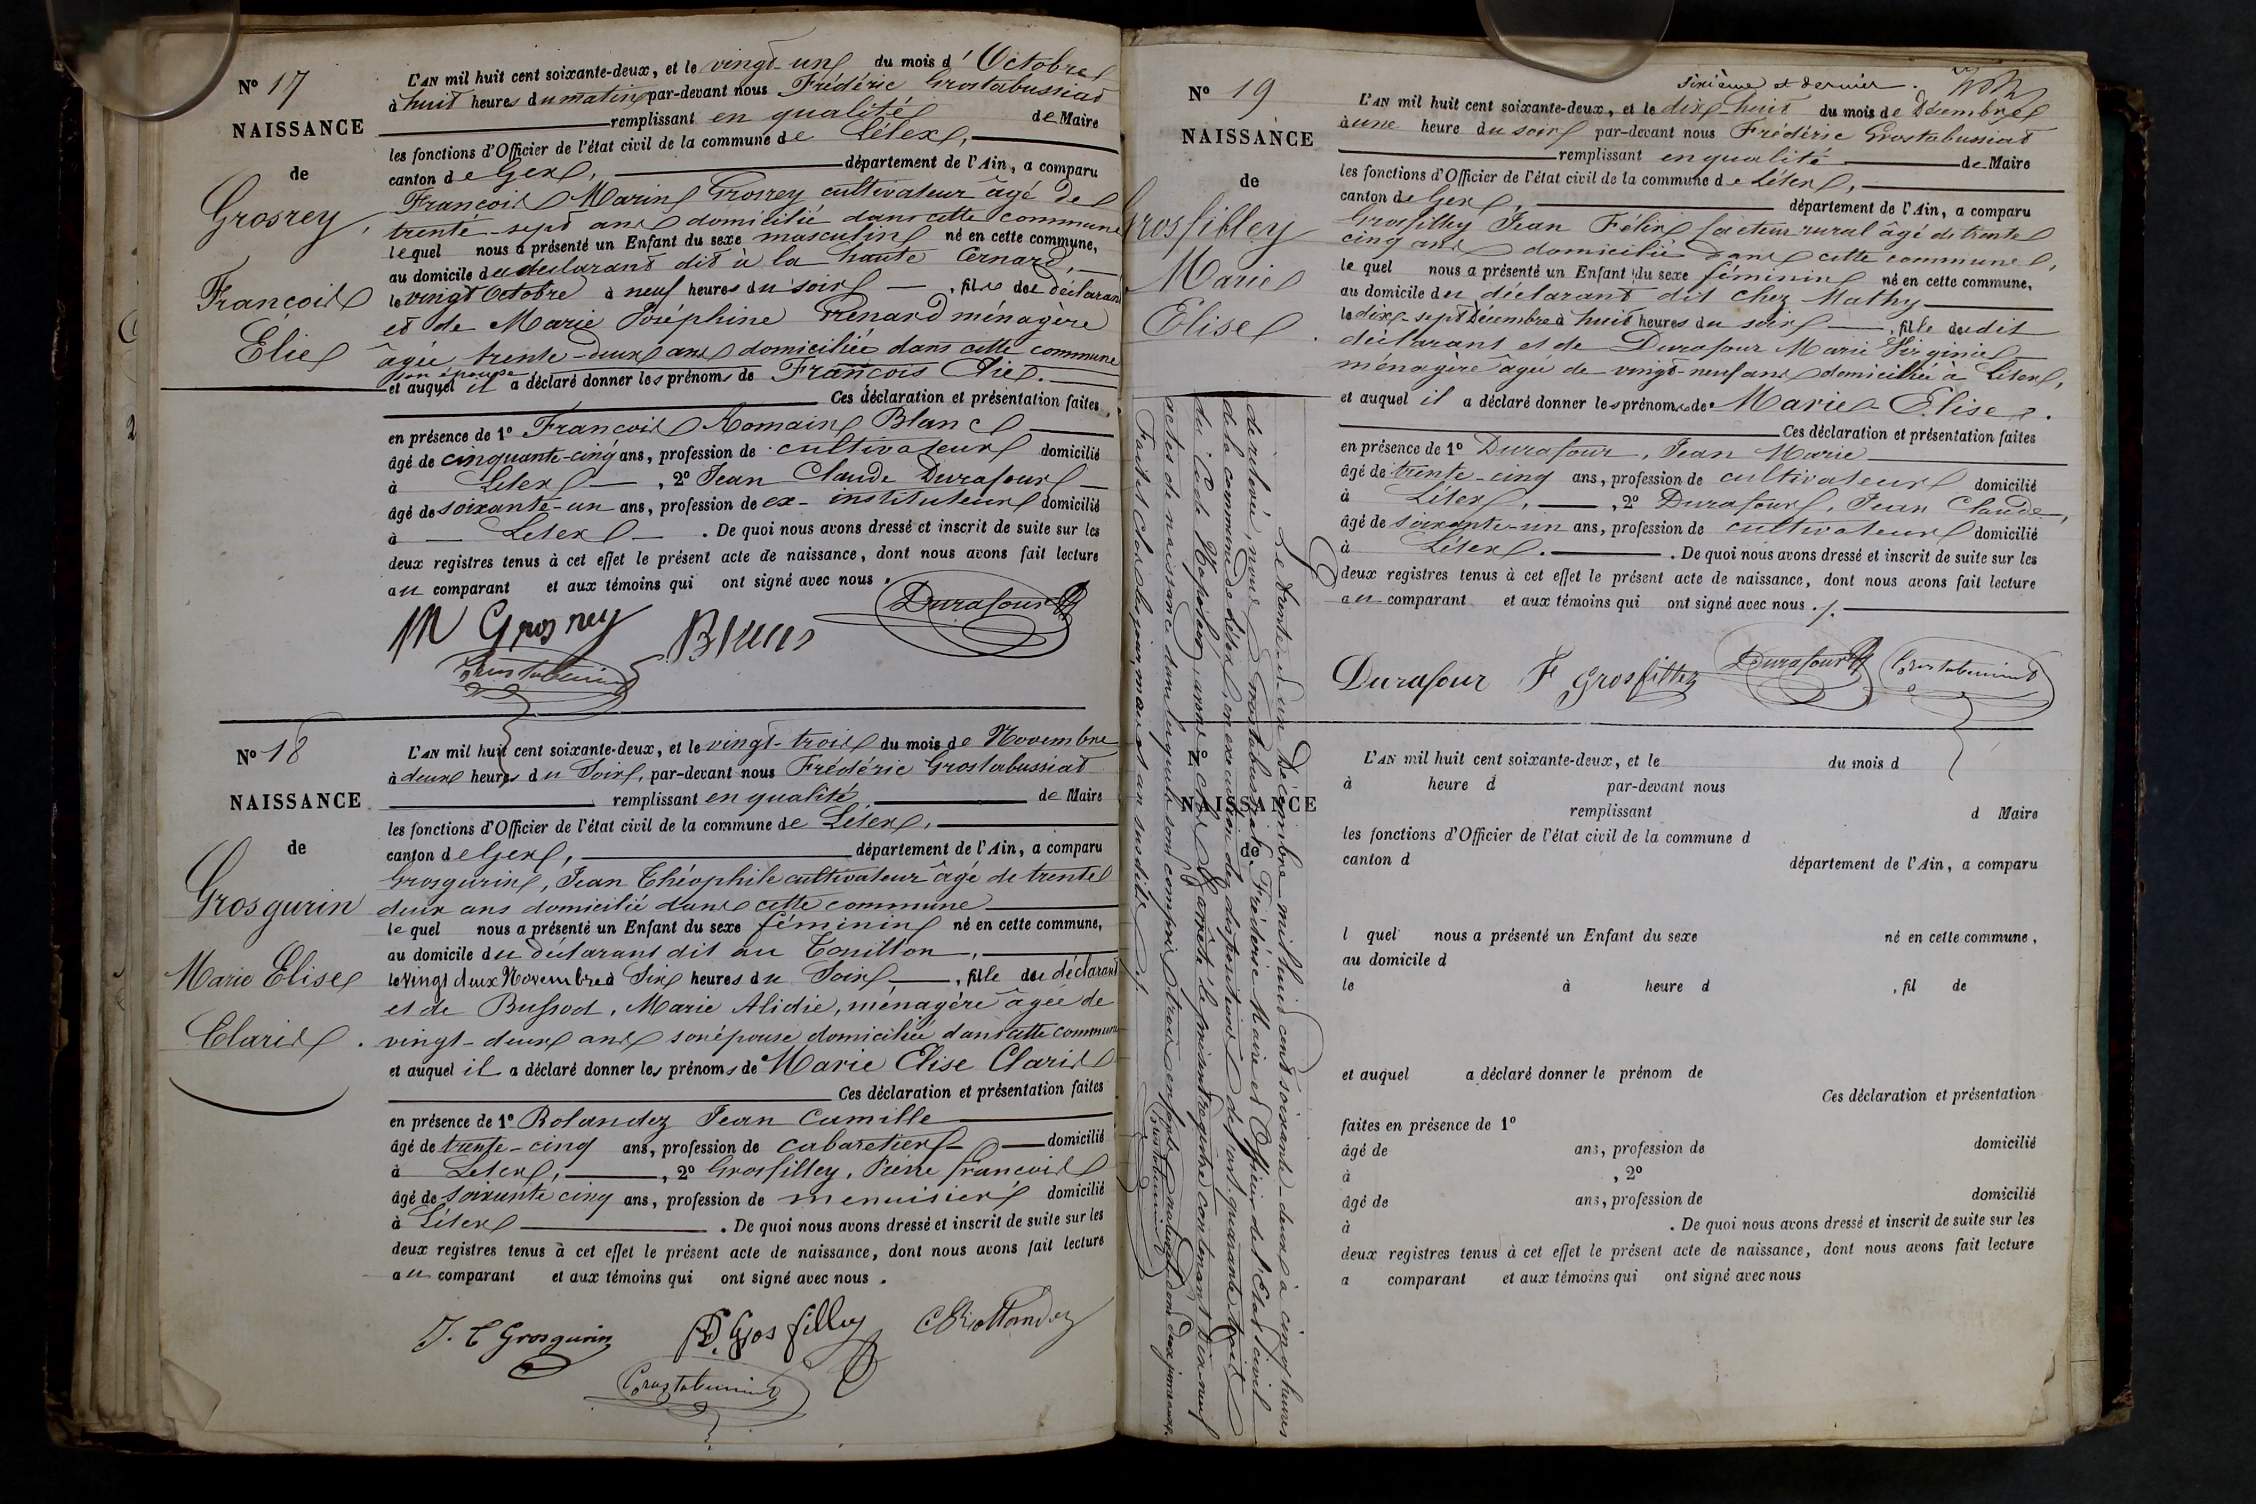 N° 17
NAISSANCE
de
Grosrey,
François
Elie
L'AN mil huit cent soixante-deux, et le vingt-un du mois d'Octobre
à huit heures du matin par-devant nous Frédéric Grostabussiat
remplissant en qualité de Maire
les fonctions d'Officier de l'état civil de la commune de Lélex,
canton de Gex, département de l'Ain, a comparu
François Marin Grosrey cultivateur âgé de
trente-sept ans domicilié dans cette commune
lequel nous a présenté un Enfant du sexe masculin né en cette commune,
au domicile du déclarant dit à la haute Cernard,
le vingt Octobre à neuf heures du soir, fils du déclarant
et de Marie Joséphine Grenard ménagère
âgée trente-deux ans domiciliée dans cette commune
son épouse
et auquel il a déclaré donner les prénoms de François Elie.
Ces déclaration et présentation faites,
en présence de 1° François Romain Blanc
âgé de cinquante-cinq ans, profession de cultivateur domicilié
à Lelex, 2° Jean Claude Durafour
âgé de soixante-un ans, profession de ex-instituteur domicilié
à Lelex. De quoi nous avons dressé et inscrit de suite sur les
deux registres tenus à cet effet le présent acte de naissance, dont nous avons fait lecture
au comparant et aux témoins qui ont signé avec nous.
M Grosrey Blanc Durafour
Grostabussiat
N° 18
NAISSANCE
de
Grosgurin
Marie Elise
Claris.
L'AN mil huit cent soixante-deux, et le vingt-trois du mois de Novembre
à deux heures du Soir, par-devant nous Frédéric Grostabussiat
remplissant en qualité de Maire
les fonctions d'Officier de l'état civil de la commune de Lelex,
canton de Gex, département de l'Ain, a comparu
Grosgurin, Jean Théophile cultivateur âgé de trente
deux ans domicilié dans cette commune
lequel nous a présenté un Enfant du sexe féminin né en cette commune,
au domicile du déclarant dit au Touillon,
le vingt deux Novembre à Six heures du Soir, fille du déclarant
et de Bussod, Marie Alidie, ménagère âgée de
vingt-deux ans son épouse domiciliée dans cette commune
et auquel il a déclaré donner les prénoms de Marie Elise Claris
Ces déclaration et présentation faites
en présence de 1° Rolandez Jean Camille
âgé de trente-cinq ans, profession de cabaretier domicilié
à Lelex, 2° Grosfilley, Pierre François
âgé de soixante cinq ans, profession de menuisier domicilié
à Lélex. De quoi nous avons dressé et inscrit de suite sur les
deux registres tenus à cet effet le présent acte de naissance, dont nous avons fait lecture
au comparant et aux témoins qui ont signé avec nous.
J. T Grosgurin Grosfilley C Rollandez
Grostabussiat
Sixième et dernier.
N° 19
NAISSANCE
de
Grosfilley
Marie
Elise.
L'AN mil huit cent soixante-deux, et le dix-huit du mois de Décembre
à une heure du soir par-devant nous Frédéric Grostabussiat
remplissant en qualité de Maire
les fonctions d'Officier de l'état civil de la commune de Lélex,
canton de Gex, département de l'Ain, a comparu
Grosfilley Jean Félix facteur rural âgé de trente
cinq ans domicilié dans cette commune,
lequel nous a présenté un Enfant du sexe féminin né en cette commune,
au domicile du déclarant dit chez Mathy
le dix-sept Décembre à huit heures du soir, fille dudit
déclarant et de Durafour Marie Virginie
ménagère âgée de vingt-neuf ans domiciliée à Lélex,
et auquel il a déclaré donner les prénoms de Marie Elise.
Ces déclaration et présentation faites
en présence de 1° Durafour, Jean Marie
âgé de trente-cinq ans, profession de cultivateur domicilié
à Lélex, 2° Durafour, Jean Claude,
âgé de soixante-un ans, profession de cultivateur domicilié
à Lélex. De quoi nous avons dressé et inscrit de suite sur les
deux registres tenus à cet effet le présent acte de naissance, dont nous avons fait lecture
au comparant et aux témoins qui ont signé avec nous.
Durafour F Grosfilley Durafour Grostabussiat
Le trente et un Décembre mil huit cent soixante-deux à cinq heures
de relevée, nous Grostabussiat, Frédéric Maire et Officier de l'Etat civil
de la commune de Lélex, en exécution des dispositions de l'art. quarante trois
du Code Napoléon, avons clos & arrêté le présent registre contenant dix-neuf
actes de naissance dans laquelle sont compris trois enfants naturels dont deux jumeaux.
Fait et clos les jour, mois et an susdits.
Grostabussiat
N°
NAISSANCE
de
L'AN mil huit cent soixante-deux, et le du mois d
à heure d par-devant nous
remplissant d Maire
les fonctions d'Officier de l'état civil de la commune d
canton d département de l'Ain, a comparu
l quel nous a présenté un Enfant du sexe né en cette commune,
au domicile d
le à heure d , fil de
et auquel a déclaré donner le prénom de
Ces déclaration et présentation
faites en présence de 1°
âgé de ans, profession de domicilié
à , 2°
âgé de ans, profession de domicilié
à . De quoi nous avons dressé et inscrit de suite sur les
deux registres tenus à cet effet le présent acte de naissance, dont nous avons fait lecture
a comparant et aux témoins qui ont signé avec nous